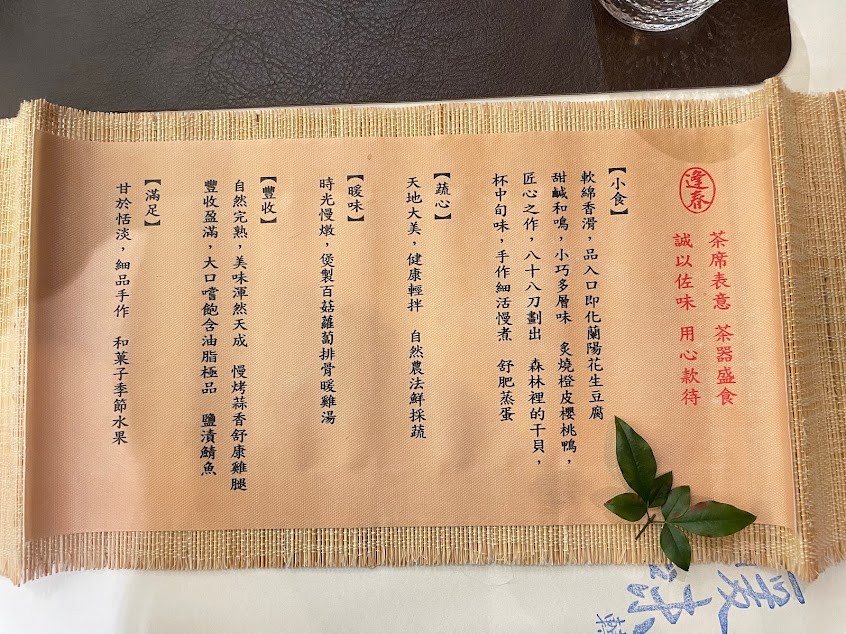 逢春
茶席表意　茶器盛食
誠以佐味　用心款待
【小食】
軟綿香滑，品入口即化蘭陽花生豆腐
甜鹹和鳴，小巧多層味　炙燒橙皮櫻桃鴨，
匠心之作，八十八刀劃出　森林裡的干貝，
杯中旬味，手作細活慢煮　舒肥蒸蛋
【蔬心】
天地大美，健康輕拌　自然農法鮮採蔬
【暖味】
時光慢燉，煲製百菇蘿蔔排骨暖雞湯
【豐收】
自然完熟，美味渾然天成　慢烤蒜香舒康雞腿
豐收盈滿，大口嚐飽含油脂極品　鹽漬鯖魚
【滿足】
甘於恬淡，細品手作　和菓子季節水果